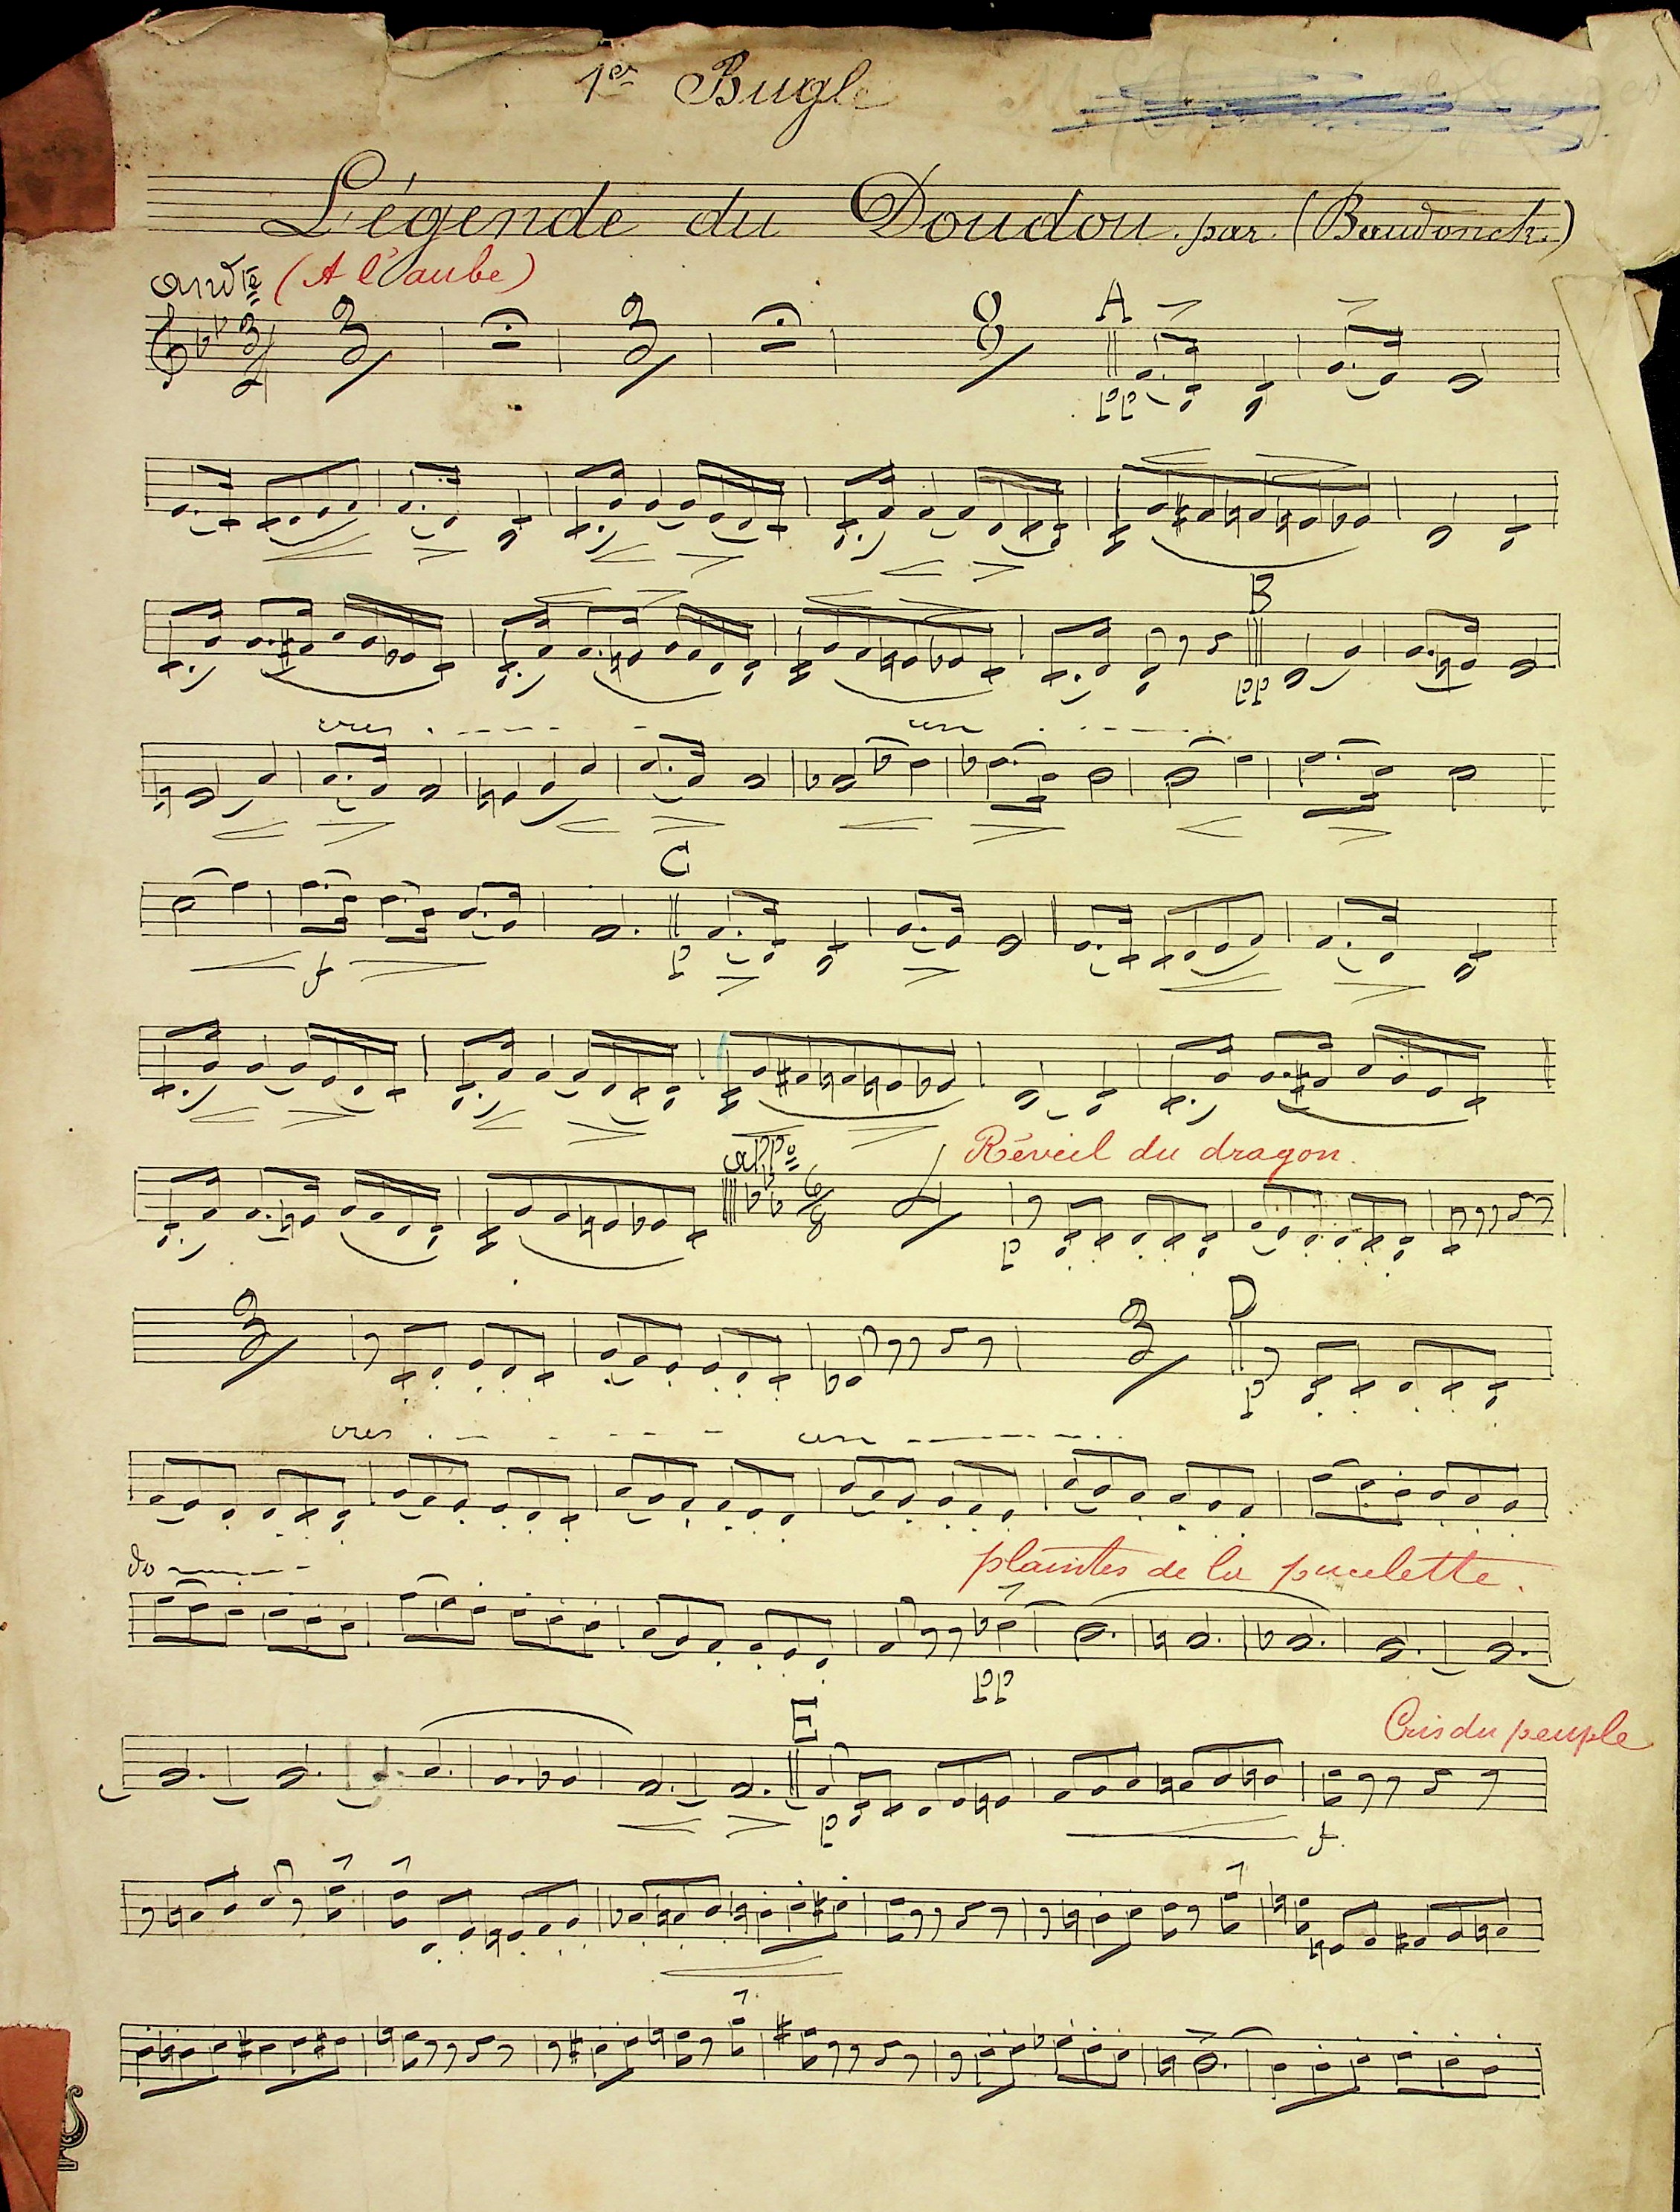 1er Bugle
Légende du Doudou par (Baudonck.)
andte (A l'aube)
3 4 3 3 8 A
pp
B
pp
cres . - - - - cen . - - - -
C
p f p
app° Réveil du dragon.
6 8
p
3 3 D
p
cres . - - - - cen - - - -
do - - - - plaintes de la pucelette.
pp
E Cris du peuple
p f.